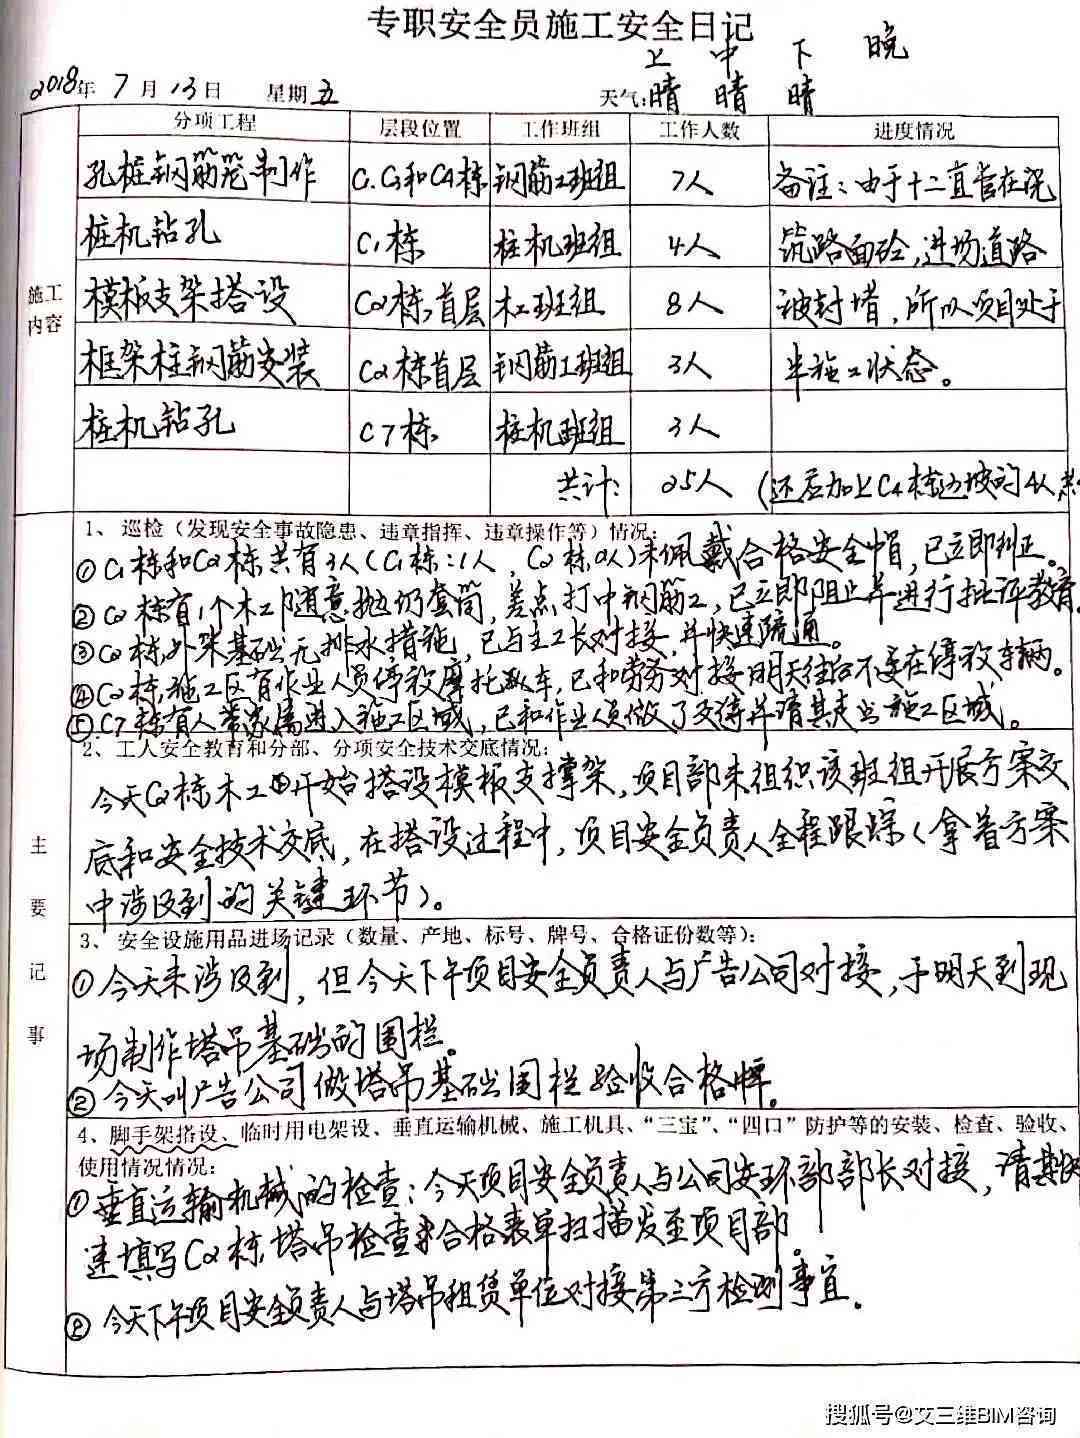 专职安全员施工安全日记
上 中 下 晚
2018年 7月 13日 星期五 天气:晴 晴 晴
分项工程 层段位置 工作班组 工作人数 进度情况
孔桩钢筋笼制作 C1、C3和C4栋 钢筋工班组 7人 备注：由于十二直管在浇
桩机钻孔 C1栋 桩机班组 4人 筑路面砼，进场道路
施工
内容
模板支架搭设 C2栋，首层 木工班组 8人 被封堵，所以项目处于
框架柱钢筋安装 C2栋首层 钢筋工班组 3人 半施工状态。
桩机钻孔 C7栋 桩机班组 3人
共计： 25人 (还应加上C4栋边坡的4人
1、巡检（发现安全事故隐患、违章指挥、违章操作等）情况：
①C1栋和C2栋共有3人（C1栋：1人，C2栋2人）未佩戴合格安全帽，已立即纠正。
②C2栋有1个木工随意抛扔套筒，差点打中钢筋工，已立即阻止并进行批评教育
③C2栋，外架基础无排水措施，已与主工长对接，并快速疏通。
④C2栋，施工区有作业人员停放摩托车，已和劳务对接明天往后不要在停放车辆。
⑤C7栋有人带家属进入施工区域，已和作业人员做了交待并请其走出施工区域。
2、工人安全教育和分部、分项安全技术交底情况：
今天C2栋木工开始搭设模板支撑架，项目部未组织该班组开展方案交
底和安全技术交底，在搭设过程中，项目安全负责人全程跟踪（拿着方案
中涉及到的关键环节）。
主
要
记
事
3、安全设施用品进场记录（数量、产地、标号、牌号、合格证份数等）：
①今天未涉及到，但今天下午项目安全负责人与广告公司对接，于明天到现
场制作塔吊基础的围栏。
②今天叫广告公司做塔吊基础围栏验收合格牌。
4、脚手架搭设、临时用电架设、垂直运输机械、施工机具、“三宝”、“四口”防护等的安装、检查、验收、
使用情况情况：
①垂直运输机械的检查：今天项目安全负责人与公司安环部部长对接，请其快
速填写C2栋塔吊检查合格表单扫描发至项目部。
②今天下午项目安全负责人与塔吊租赁单位对接第三方检测事宜。
搜狐号@艾三维BIM咨询